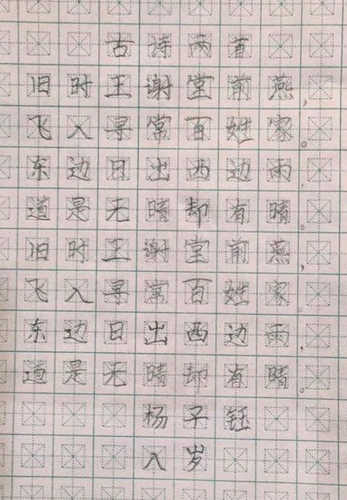 古诗两首
旧时王谢堂前燕,
飞入寻常百姓家。
东边日出西边雨,
道是无晴却有晴。
旧时王谢堂前燕,
飞入寻常百姓家。
东边日出西边雨,
道是无晴却有晴。
杨子钰
八岁